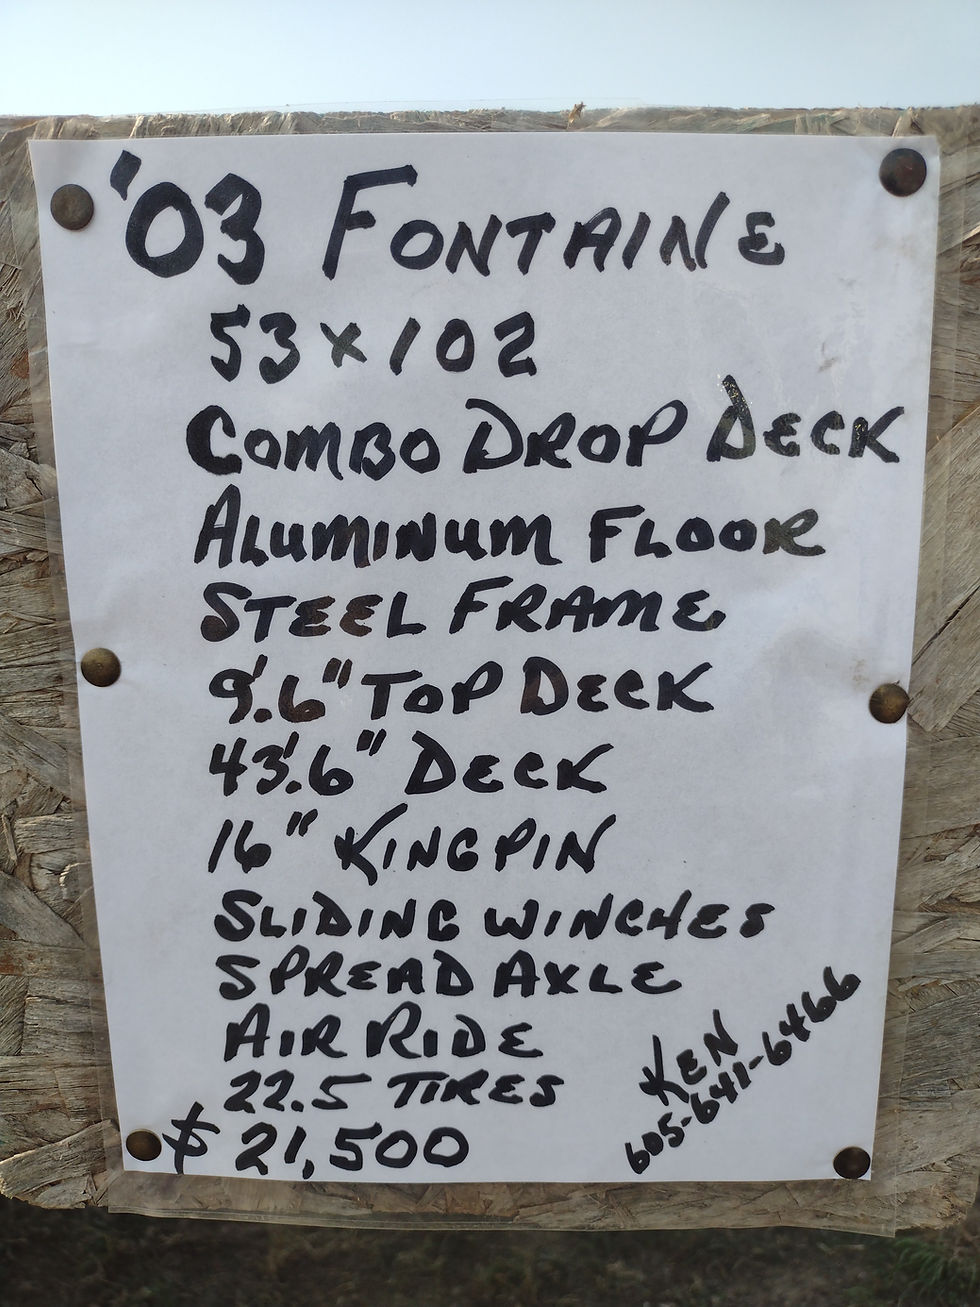 '03 FONTAINE
53x102
COMBO DROP DECK
ALUMINUM FLOOR
STEEL FRAME
9'.6" TOP DECK
43'.6" DECK
16" KINGPIN
SLIDING WINCHES
SPREAD AXLE
AIR RIDE
22.5 TIRES
$21,500
KEN
605-641-6466